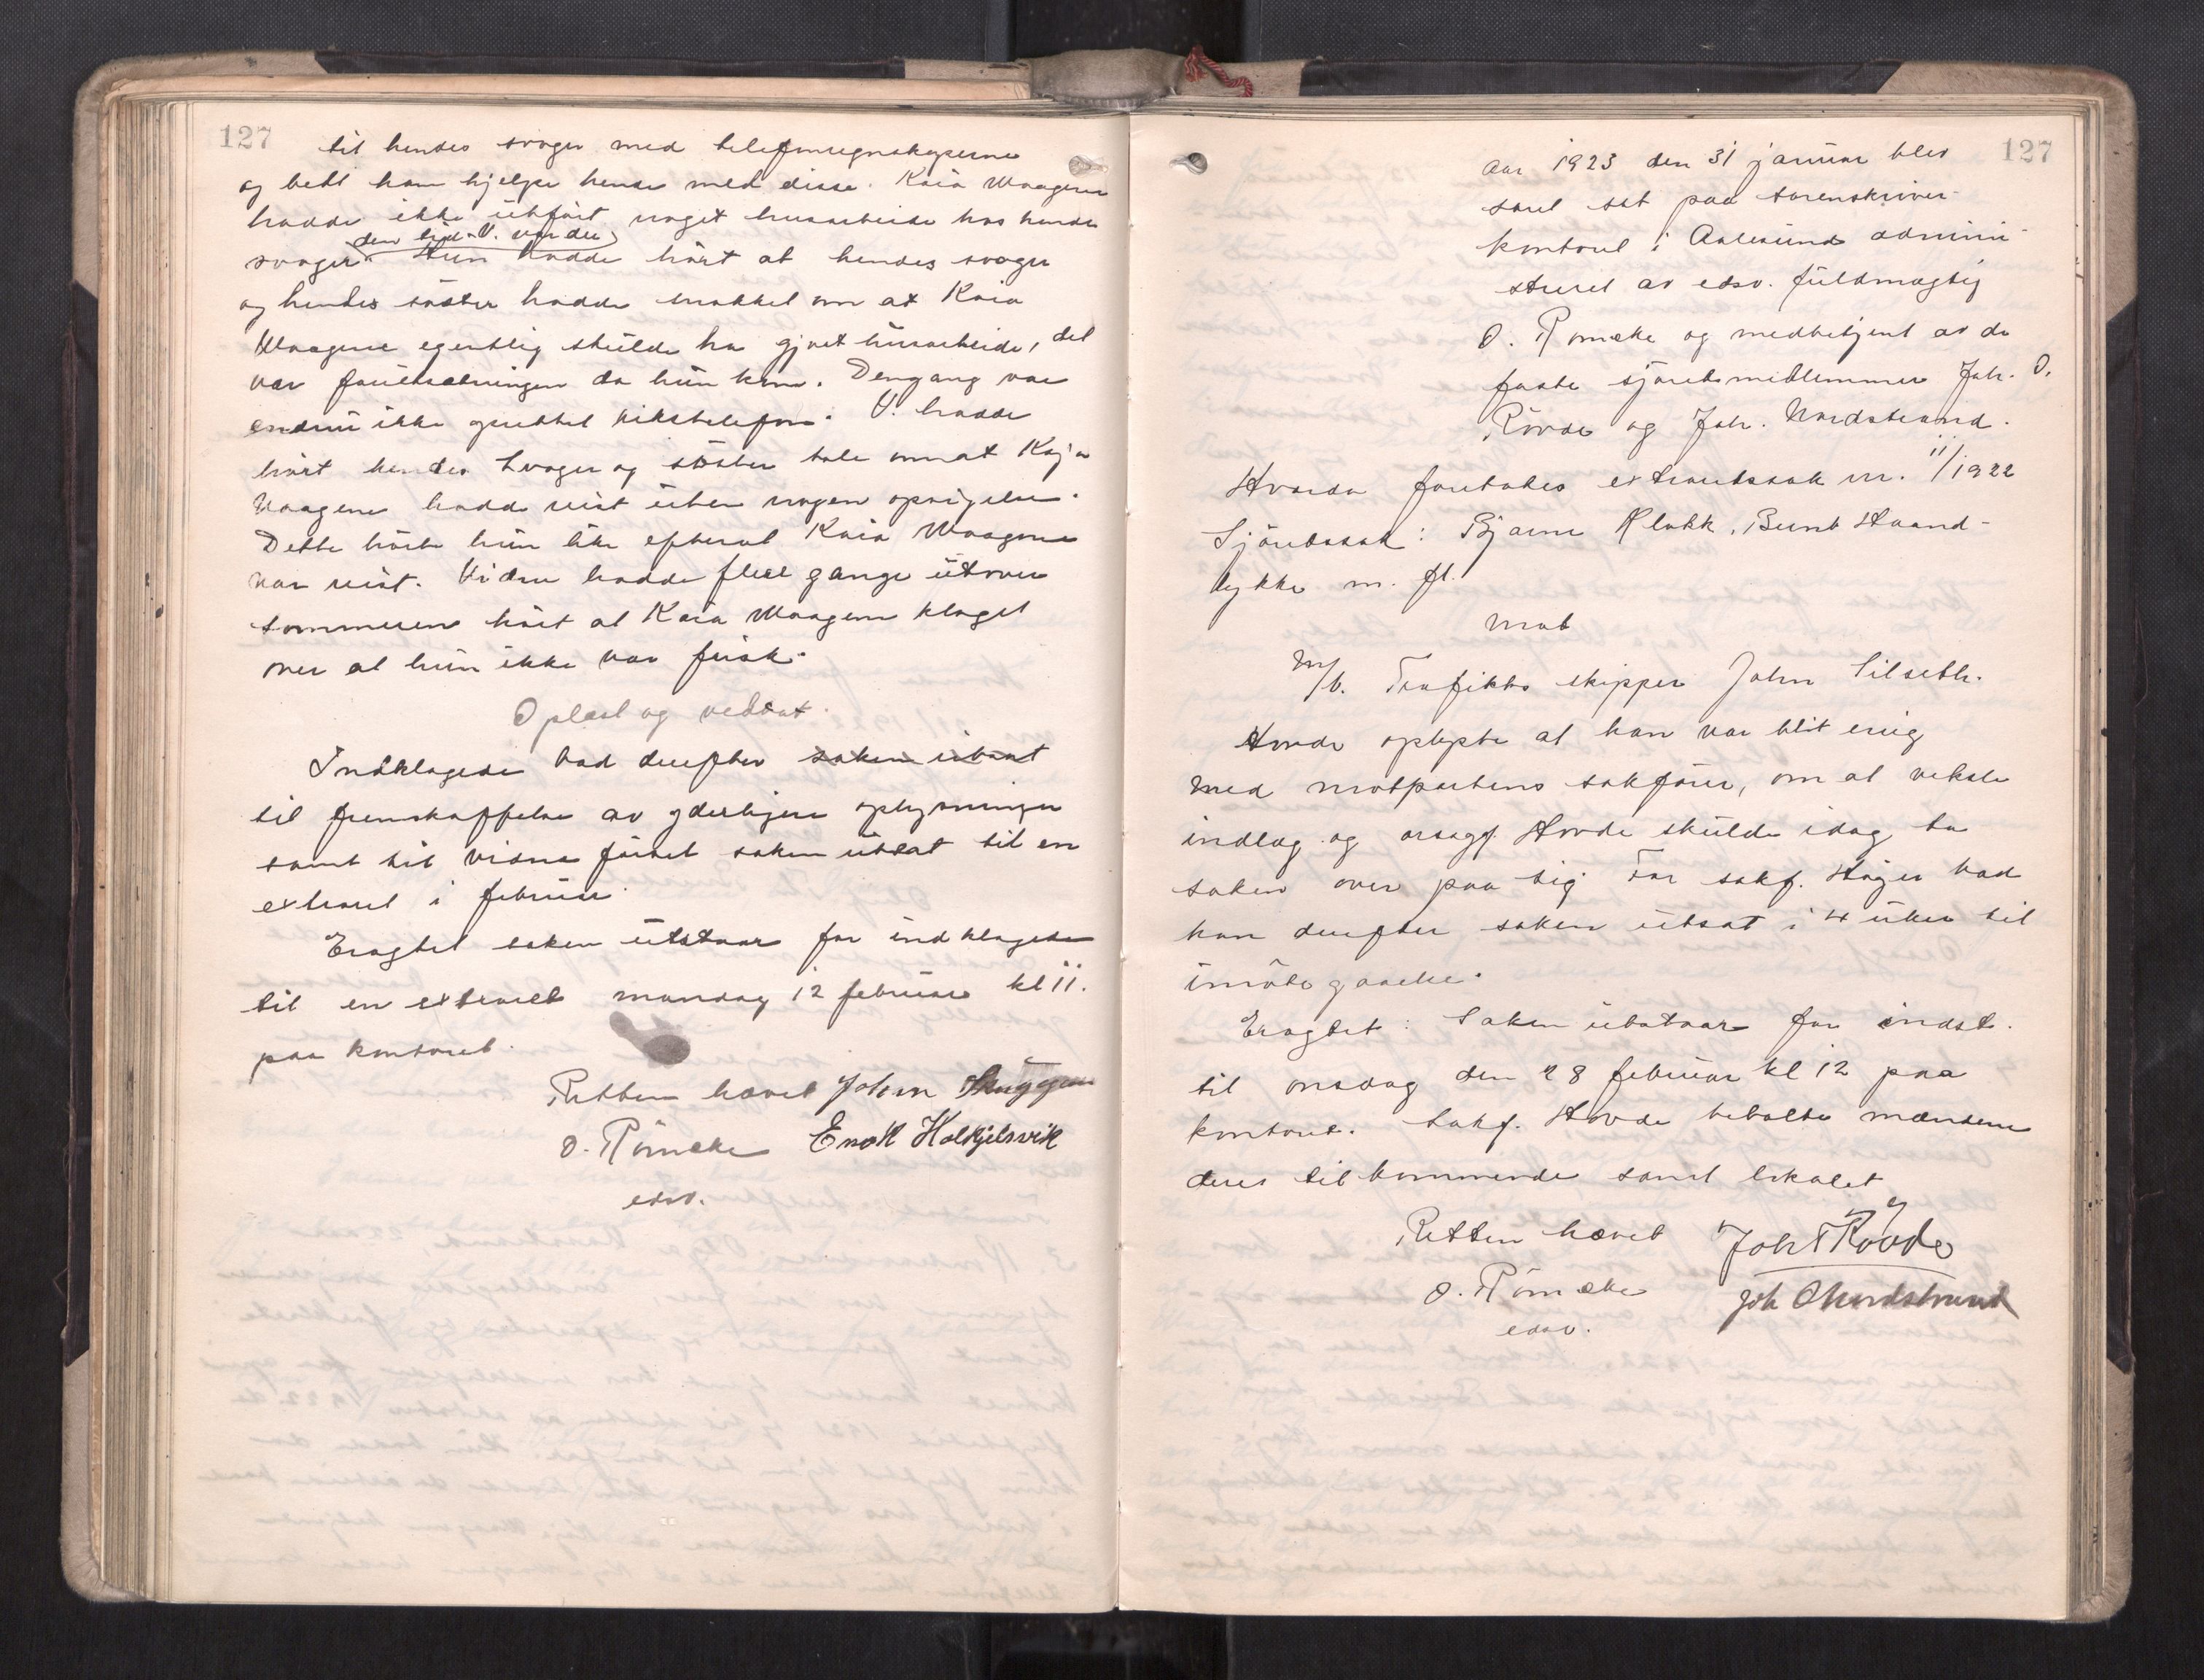 127
til hendes svoger med telefonregnskaperne
og bedt ham hjelpe hende med disse. Kaia Waagene
hadde ikke utført noget husarbeide hos hendes
den tid V. var der
svoger. Hun hadde hørt at hendes svoger
og hendes søster hadde snakket om at Kaia
Waagene egentlig skulde ha gjort husarbeide, det
var forutsætningen da hun kom. Dengang var
endnu ikke oprettet rikstelefon. V. hadde
hørt hendes svoger og søster tale om at Kaja
Waagene hadde reist uten nogen opsigelse.
Dette hørte hun like efterat Kaia Waagene
var reist. Vidnet hadde flere gange utover
sommeren hørt at Kaia Waagene klaget
over at hun ikke var frisk.
Oplæst og vedtat.
Indklagede bad derefter saken utsat
til fremskaffelse av yderligere oplysninger
samt til vidne førsel saken utsat til en
extraret i februar.
Eragtet saken utstaar for indklagede
til en extraret mandag 12 februar kl 11.
paa kontoret.
Retten hævet John Skuggen
O. Römcke Enok Holkjelsvik
edsv.
127
Aar 1923 den 31 januar blev
søret sat paa sorenskriver-
kontoret i Aalesund admini-
streret av edsv. fuldmægtig
O. Römcke og medbetjent av de
faste sjøretsmedlemmer Joh. O.
Røvde og Joh. Nordstrand.
Hvorda foretokes extraretssak nr. 11/1922
Sjøretssak: Bjarne Klokk, Bernt Haand-
lykke m. fl.
mot
M/k. Trafiks skipper John Silseth.
Hovde oplyste at han var blit enig
med motpartens sakfører, om at veksle
indlæg og Hovde skulde idag ta
saken over paa sig For sakf. Høyer bad
han derefter saken utsat i 4 uker til
imøtegaaelse.
Eragtet: Saken utstaar for indst.
til onsdag den 28 februar kl 12 paa
kontoret. Sakf. Hovde betalte mændene
deres tilkommende samt lokalet
Retten hævet Joh Røvde
O. Römcke Joh O Nordstrand
edsv.